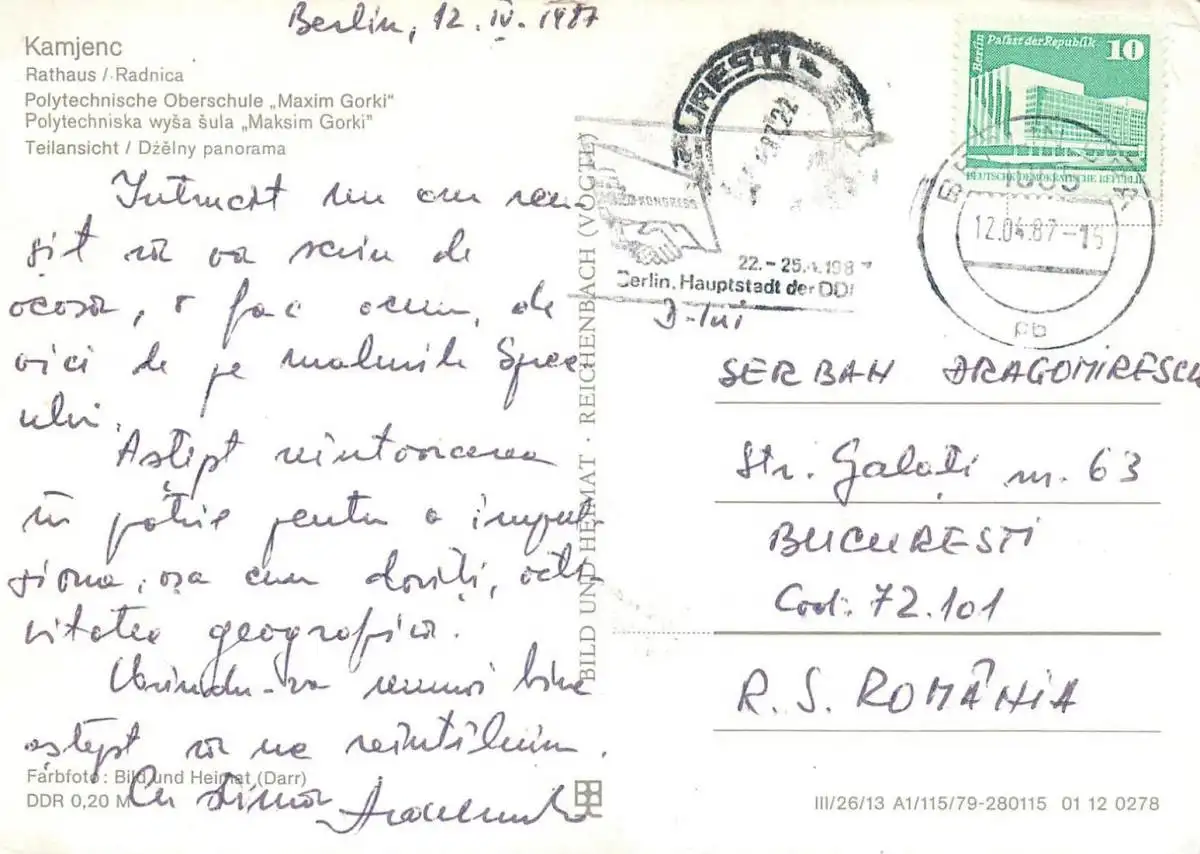 Berlin, 12.IV.1987
Kamjenc
Rathaus / Radnica
Polytechnische Oberschule „Maxim Gorki“
Polytechniska wyša šula „Maksim Gorki“
Teilansicht / Dźělny panorama
Întrucît nu am reu-
șit să va scriu de
acasă, o fac acum, de
aici de pe malurile Spree
ului.
Aștept reîntoarcerea
în patrie pentru a impul-
siona, așa cum doriți, acti-
vitatea geografică.
Urîndu-vă numai bine
aștept să ne reîntîlnim.
Cu stimă
Farbfoto: Bild und Heimat (Darr)
DDR 0,20 M
BILD UND HEIMAT · REICHENBACH (VOGTL)
UREȘTI
KONGRESS
22.–25.4.1987
Berlin, Hauptstadt der DDR
Berlin
Palast der Republik
10
DEUTSCHE DEMOKRATISCHE REPUBLIK
1085
12.04.87-15
pb
D-lui
SERBAN DRAGOMIRESCU
Str. Galați nr. 63
BUCURESTI
Cod: 72.101
R. S. ROMÂNIA
III/26/13 A1/115/79-280115 01 12 0278